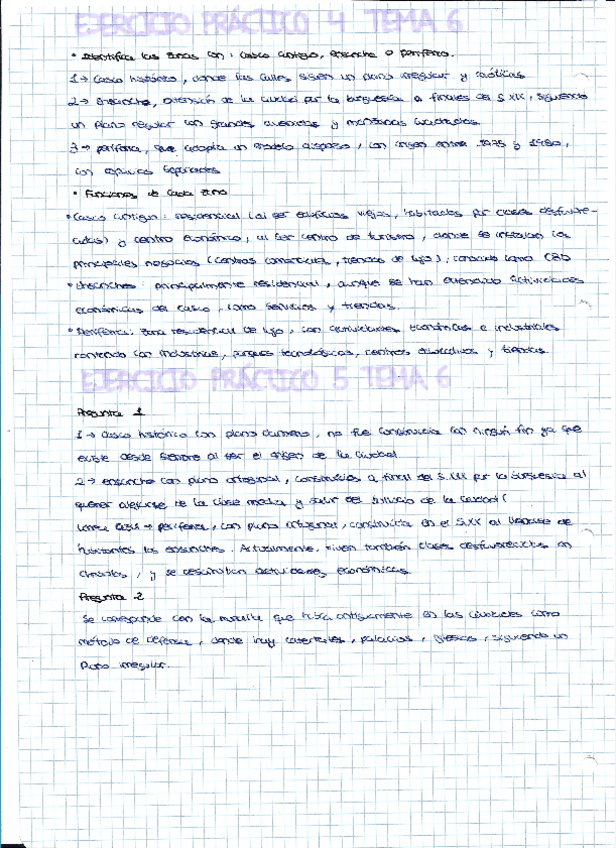 EJERCICIO PRÁCTICO 4 TEMA 6
• Identifica las zonas con: casco antiguo, ensanche o periferia.
1→ Casco histórico, donde las calles siguen un plano irregular y caóticas
2→ Ensanche, extensión de la ciudad por la burguesía a finales del S XIX, siguiendo
un plano regular con grandes avenidas y manzanas cuadradas.
3→ periferia, que adopta un modelo disperso, con origen entre 1975 y 1980,
con espacios separados
• Funciones de cada zona
• Casco antiguo: residencial (al ser edificios viejos, habitados por clases desfavore-
cidas) y centro económico, al ser centro de turismo, donde se instalan los
principales negocios (centros comerciales, tiendas de lujo), conocido como CBD
• Ensanches: principalmente residencial, aunque se han extendido actividades
económicas del casco, como servicios y tiendas.
• Periferia: zona residencial de lujo, con actividades económicas e industriales
contando con industrias, parques tecnológicos, centros educativos y tiendas.
EJERCICIO PRÁCTICO 5 TEMA 6
Pregunta 1
1→ Casco histórico con plano , no fue construida con ningún fin ya que
existe desde siempre al ser el origen de la ciudad
2→ ensanche con plano ortogonal, construidos a final del S.XIX por la burguesía al
querer alejarse de la clase media y salir del de la ciudad
Línea azul → periferia, con plano ortogonal, construida en el S.XX al llenarse de
habitantes los ensanches. Actualmente, viven también clases desfavorecidas en
, y se desarrollan actividades económicas.
Pregunta 2
Se corresponde con la muralla que había antiguamente en las ciudades como
método de defensa, donde hay catedrales, palacios, iglesias, siguiendo un
plano irregular.